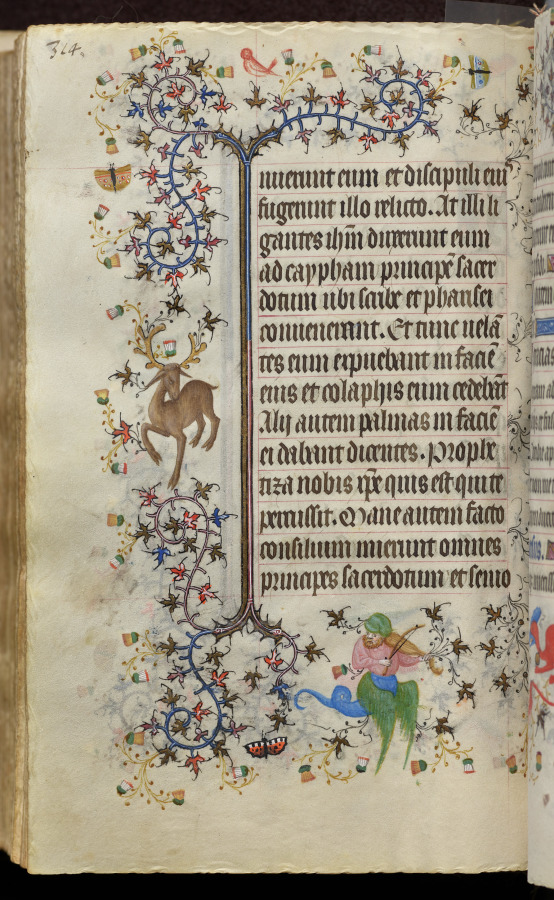 314.
uuerunt eum et discipuli eiꝰ
fugerunt illo relicto. At illi li
gantes ihm̄ duxerunt eum
ad caypham principē sacer
dotum ubi scribe et pharisei
conuenerant. Et tunc uelā
tes eum expuebant in faciē
eius et colaphis eum cedebāt
Alij autem palmas in faciē
ei dabant dicentes. Prophe
tiza nobis xp̄e quis est qui te
percussit. Mane autem facto
consilium inierunt omnes
principes sacerdotum et senio